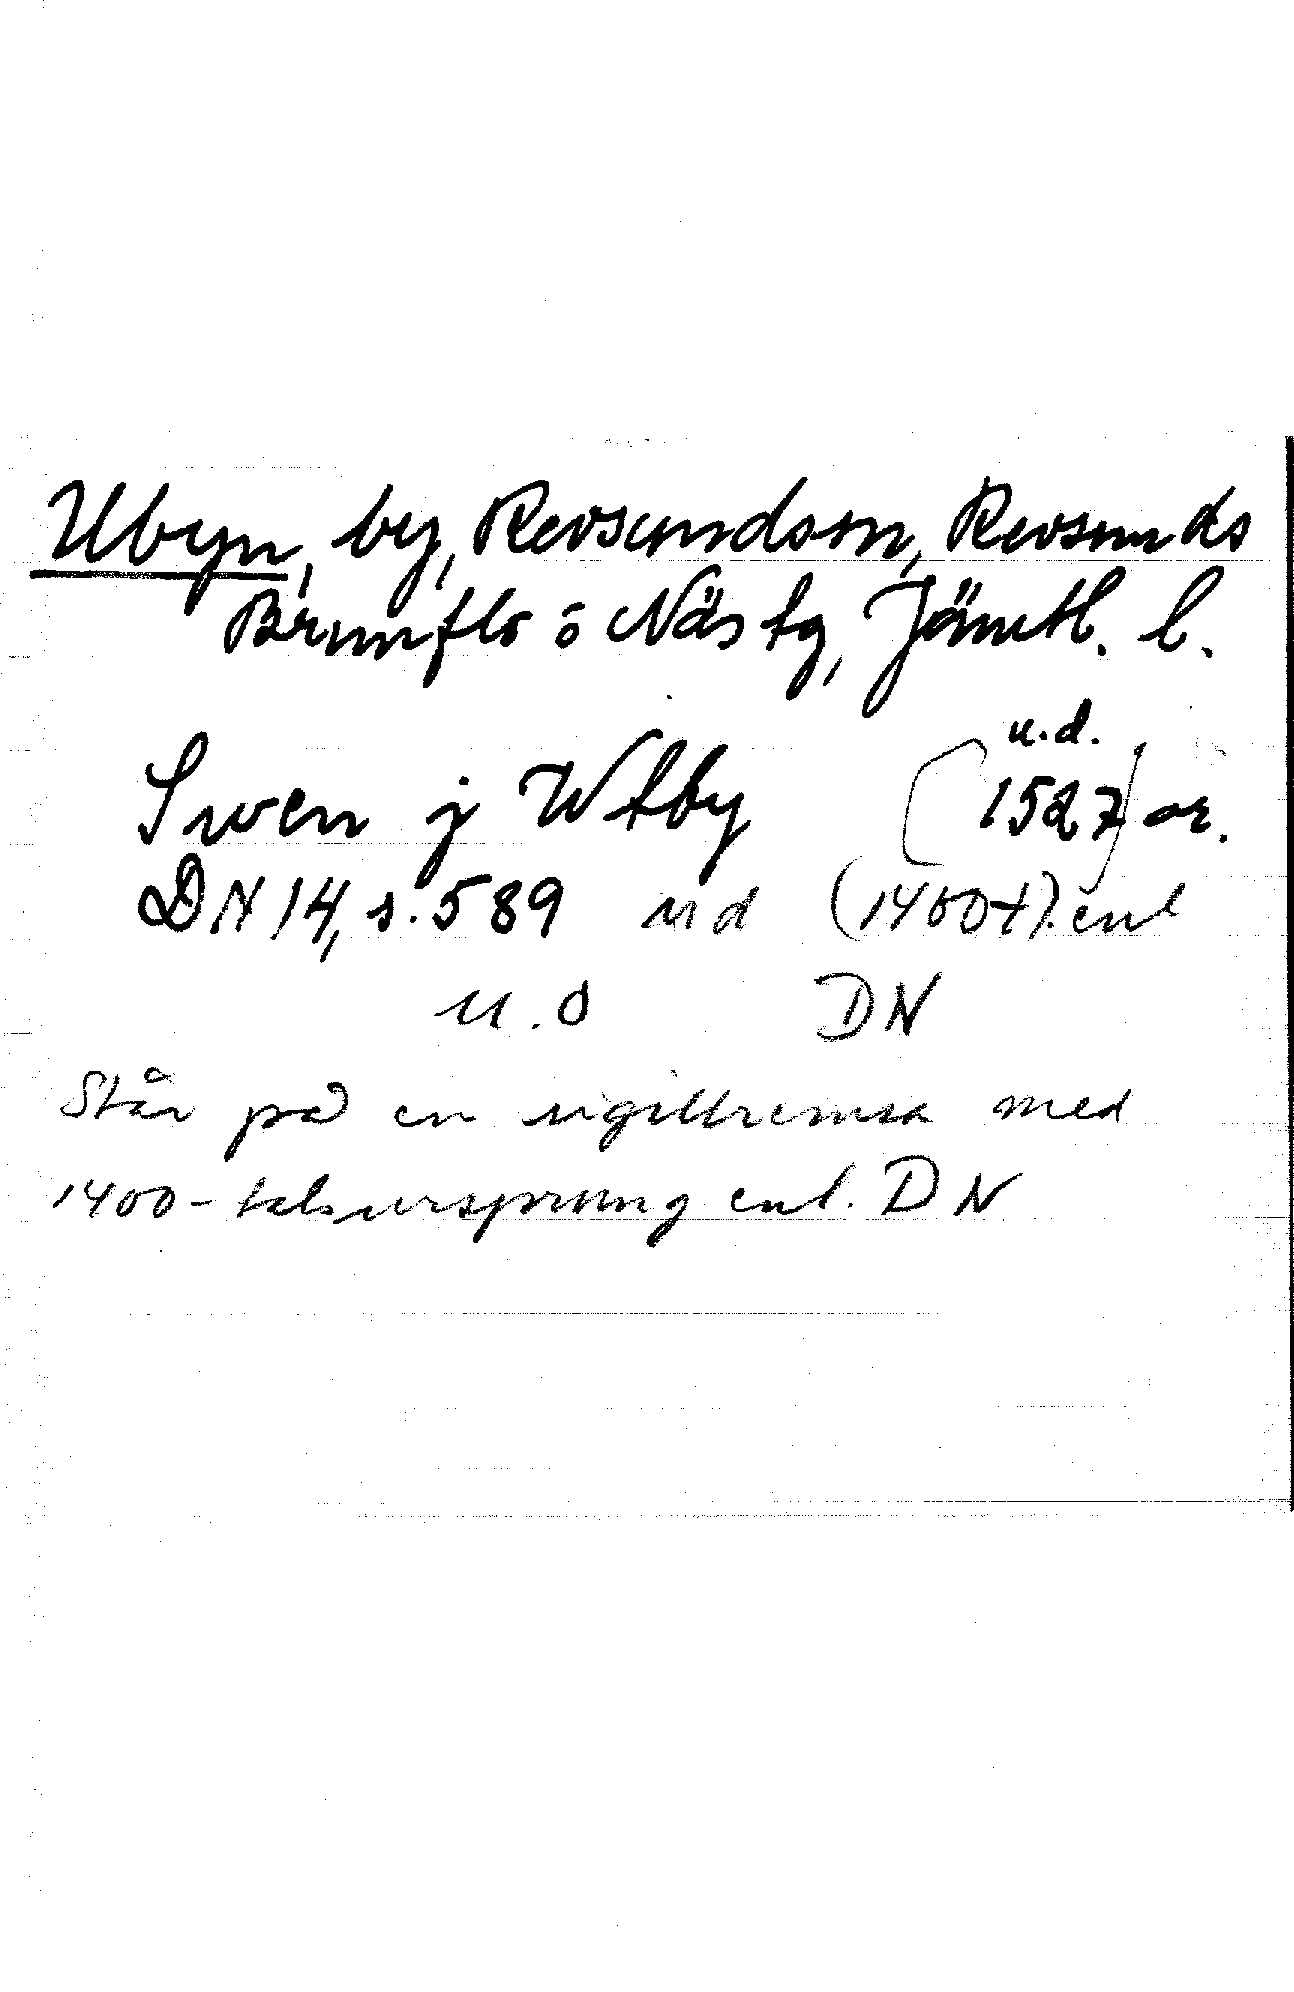 Ubyn, by, Revsundssn, Revsunds
Brunflo o Näs tg, Jämtl. l.
u.d.
Swen j Wtby (1527) or.
DN 14, s. 589 ud (1400-t). enl
u. d DN
Står på en sigillremsa med
1400-talsursprung enl. DN